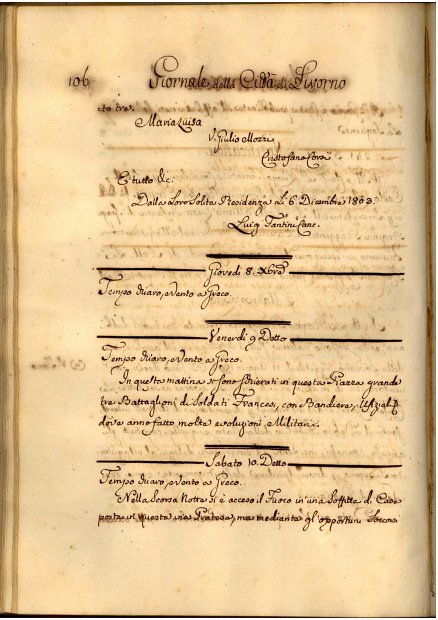 106 Giornale della Città di Livorno
to tre.
Maria Luisa
V. Giulio Mozzi
Cristofano
E tutto &c.
Dalla Loro Solita Residenza Li 6 Dicembre 1803.
Luigi Fantini Canc.
Giovedi 8. Xbre
Tempo chiaro, e Vento a Greco.
Venerdi 9 Detto
Tempo chiaro, e Vento a Greco.
In questa mattina si sono schierati in questa Piazza grande
tre Battaglioni di Soldati Francesi, con Bandiere,
dove anno fatto molte evoluzioni Militari.
Sabato 10. Detto
Tempo chiaro, e Vento a Greco.
Nella Scorsa Notte si è acceso il Fuoco in una Soffitta di Casa
posta in questa via, ma mediante gl'opportuni Soccor